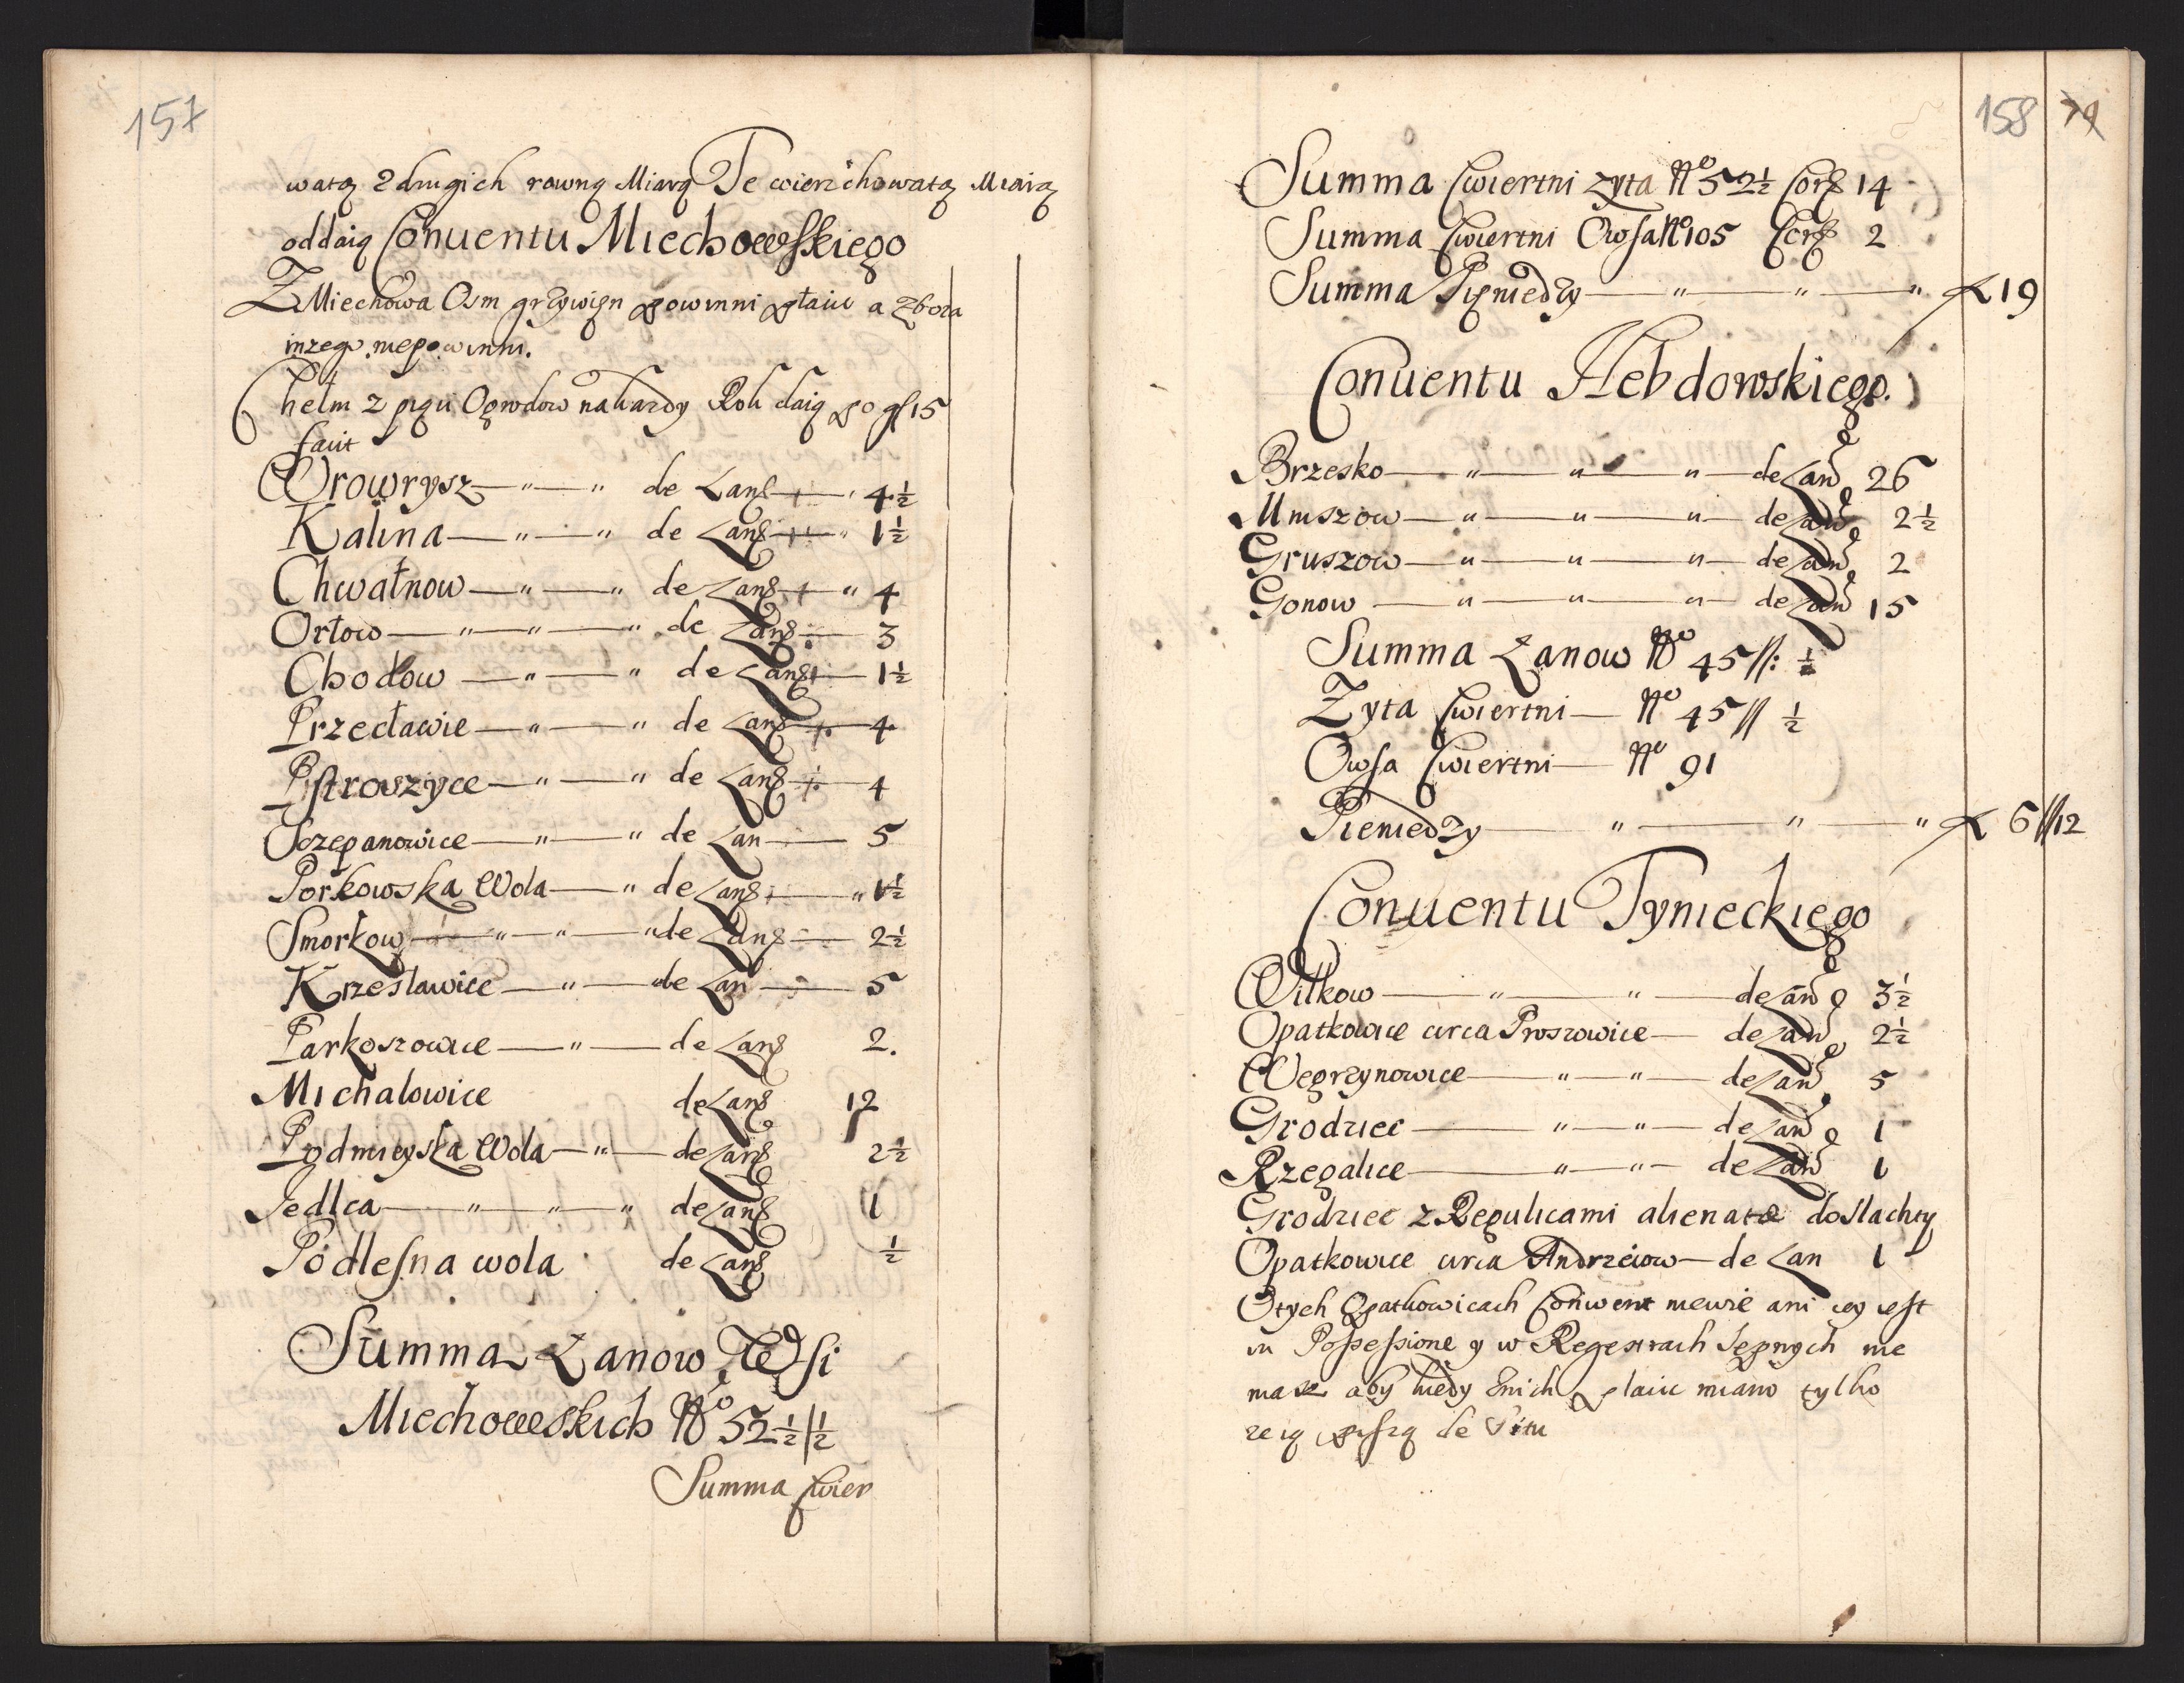 157
watą z drugich rowną Miarą Te wierzchowatą Miarą
oddaią Conuentu Miechowskiego
Z Miechowa Osm grzywięn powinni płaić a zboza
inzego niepowinni.
Chełm z pąqu Ogrodow na każdy Rok daią po gſ 15
facit
Worowrysz —"—" de Łanſ 4½
Kalina —"—" de Łanſ " 1½
Chwałnow —"—" de Łanſ " 4
Orłow —"—"—" de Łanſ 3
Chodow —"—" de Łanſ 1½
Przecławie —"—" de Łanſ 4
Pstroszyce —"—" de Łanſ 4
Sczepanowice —"—" de Łan 5
Porkowska Wola —" de Łanſ " 1½
Smorkow —"—"—" de Łanſ 2½
Krzesławice —"—" de Łan 5
Parkoszowice —"— de Łanſ 2.
Michalowice de Łanſ 12
Podmieyska Wola —"— de Łanſ 2½
Jedlca —"—"—" de Łanſ 1
Podleſna wola de Łanſ ½
Summa Łanow Wſi
Miechowskich No 52½|½
Summa Cwier
158 79
Summa Cwiertni Zyta No 52½ Corſ 14
Summa Cwiertni Owſa No 105 Corſ 2
Summa Pięniedzy —"—"—" 19
Conuentu Hebdowskiego.
Brzesko —"—"—"— de Łan 26
Mniszow —"—"—"— de Łan 2½
Gruszow —"—"—"— de Łan 2
Gonow —"—"—"— de Łan 15
Summa Łanow No 45//: ½
Zyta Cwiertni — No 45// ½
Owſa Cwiertni — No 91
Pieniedzy —"—"—" 6//12
Conuentu Tynieckiego
Witkow —"—"— de Łan 3½
Opatkowice circa Proszowice — de Łan 2½
Węgrzynowice —"—"— de Łan 5
Grodziec —"—"— de Łan 1
Rzegalice —"—"— de Łan 1
Grodziec z Regulicami alienatæ do Slachty
Opatkowice circa Andrzeiow — de Łan 1
O tych Opatkowicach Conwent niewie ani iey iest
in Poſseſsione y w Regestrach Sepnych nie
masz aby kiedy znich płaić miano tylko
ze ią piſzą de Situ